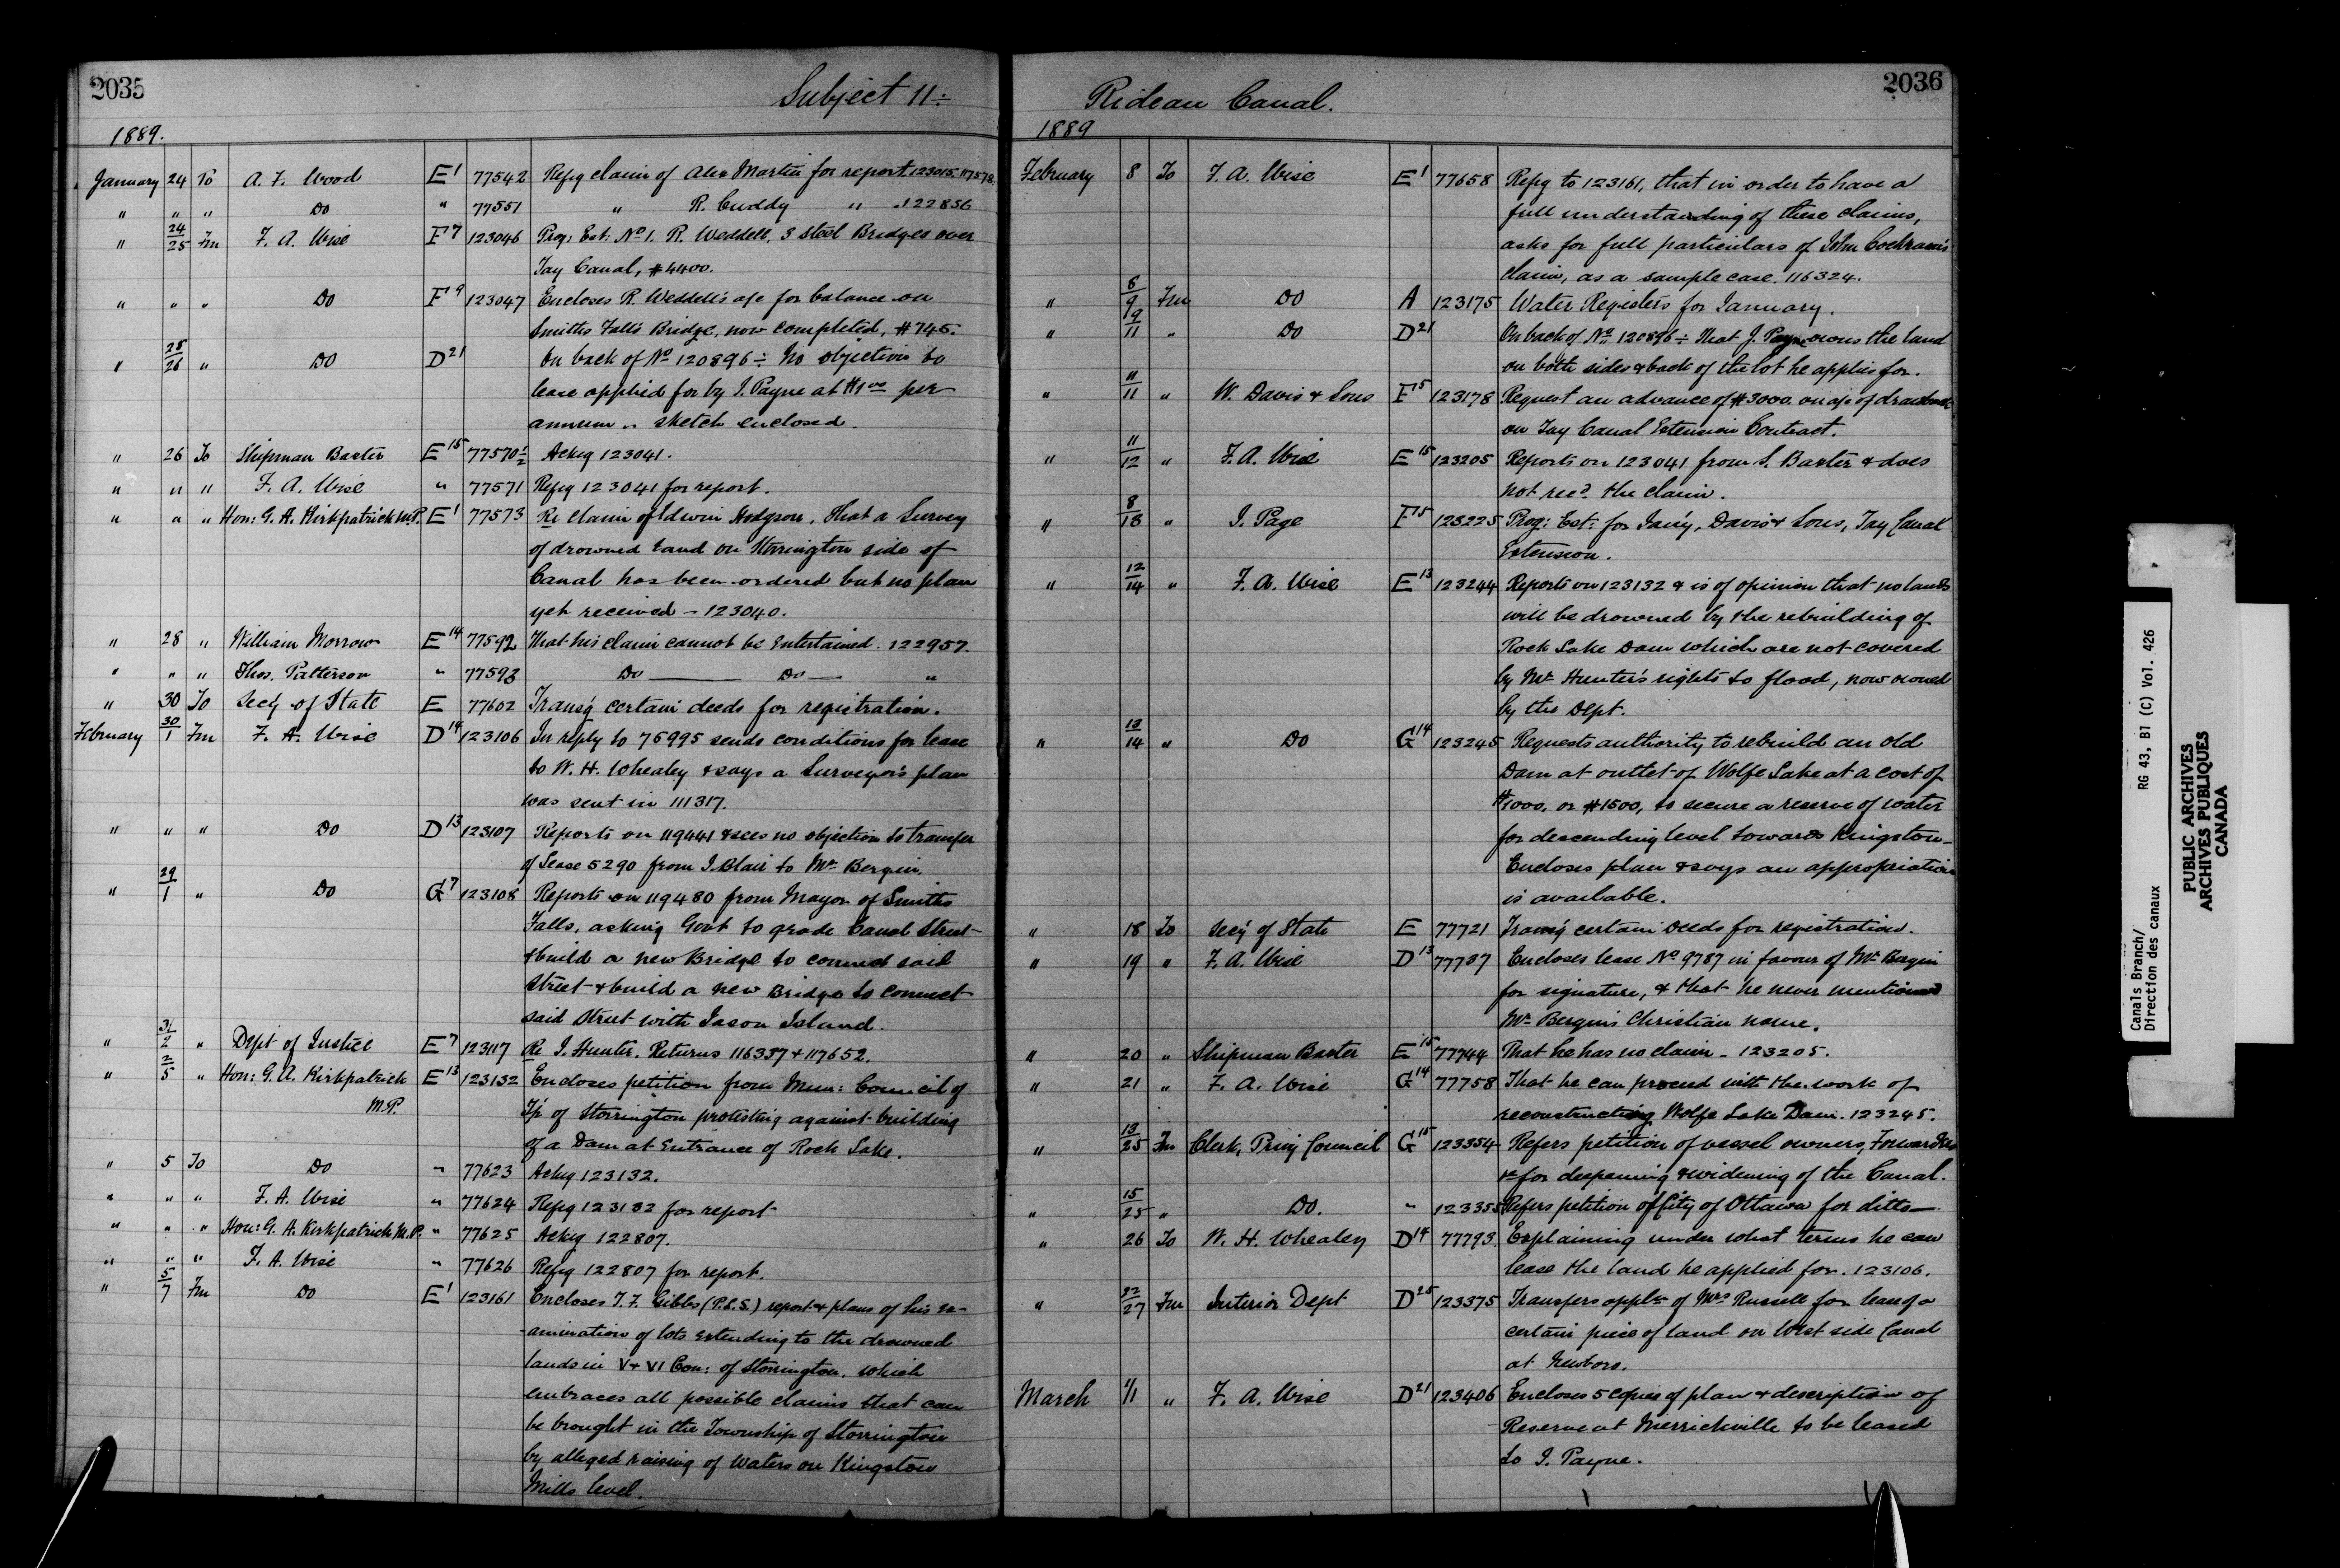 2035
Subject 11÷
1889.
January 24 To A. F. Wood E1 77542 Refg claim of Alex Martin for report 123015. 117578.
" " " Do " 77551 " R. Cuddy " . 122856
" 24/25 Fm F. A. Wise F7 123046 Prog: Est: No 1. R. Weddell, 3 Steel Bridges over
Tay Canal, $4400.
" " " Do F9 123047 Encloses R. Weddell's a/c for balance on
Smiths Falls Bridge, now completed, $745.
" 25/26 " Do D21 On back of No 120896÷ No objection to
lease applied for by J. Payne at $1.00 per
annum " sketch enclosed.
" 26 To Shipman Baxter E15 77570½ Ackg 123041.
" " " F. A. Wise " 77571 Refg 123041 for report.
" " " Hon: G. A. Kirkpatrick M.P. E1 77573 Re claim of Edwin Hodgson, that a Survey
of drowned land on Storrington side of
Canal has been ordered but no plan
yet received - 123040.
" 28 " William Morrow E14 77592 That his claim cannot be Entertained. 122957.
" " " Thos. Patterson " 77593 Do — Do — "
" 30 To Secy of State E 77602 Transg certain deeds for registration.
February 30/1 Fm F. A. Wise D14 123106 In reply to 76995 sends conditions for lease
to W. H. Whealey & says a Surveyor's plan
was sent in 111317.
" " " Do D13 123107 Reports on 119441 & sees no objection to transfer
of Lease 5290 from J. Blair to Mr Bergin.
" 29/1 " Do G7 123108 Reports on 119480 from Mayor of Smiths
Falls, asking Govt to grade Canal Street
& build a new Bridge to connect said
Street & build a new Bridge to connect
said Street with Jason Island.
" 31/2 " Dept of Justice E7 123117 Re J. Hunter. Returns 116337 & 117652.
" 2/5 " Hon: G. A. Kirkpatrick E13 123132 Encloses petition from Mun: Council of
M.P. Tp of Storrington protesting against building
of a Dam at Entrance of Rock Lake.
" 5 To Do " 77623 Ackg 123132.
" " " F. A. Wise " 77624 Refg 123132 for report
" " " Hon: G. A. Kirkpatrick M.P. " 77625 Ackg 122807.
" " " F. A. Wise " 77626 Refg 122807 for report.
" 5/7 Fm Do E1 123161 Encloses T. F. Gibbs (P.L.S.) report & plans of his ex-
-amination of lots Extending to the drowned
lands in V & VI Con: of Storrington, which
embraces all possible claims that can
be brought in the Township of Storrington
by alleged raising of Waters on Kingston
Mills level.
2036
Rideau Canal.
1889
February 8 To F. A. Wise E1 77658 Refg to 123161, that in order to have a
full understanding of these claims,
asks for full particulars of John Cochrane's
claim, as a sample case. 116324.
" 6/9 Fm Do A 123175 Water Registers for January.
" 9/11 " Do D21 On back of No 120896÷ That J. Payne owns the land
on both sides & back of the lot he applies for.
" 11/11 " W. Davis & Sons F15 123178 Request an advance of $3000. on a/c of drawback
on Tay Canal Extension Contract.
" 11/12 " F. A. Wise E15 123205 Reports on 123041 from S. Baxter & does
not recd the claim.
" 8/13 " J. Page F15 123225 Prog: Est: for Jan'y, Davis & Sons, Tay Canal
Extension.
" 12/14 " F. A. Wise E13 123244 Reports on 123132 & is of opinion that no lands
will be drowned by the rebuilding of
Rock Lake Dam which are not covered
by Mr Hunter's rights to flood, now owned
by the Dept.
" 13/14 " Do G14 123245 Requests authority to rebuild an old
Dam at outlet of Wolfe Lake at a cost of
$1000. or $1500, to secure a reserve of water
for descending level towards Kingston—
Encloses plan & says an appropriation
is available.
" 18 To Secy of State E 77721 Transg certain Deeds for registration.
" 19 " F. A. Wise D13 77737 Encloses lease No 9787 in favour of Mr Bergin
for signature, & that he never mentioned
Mr Bergin's Christian name.
" 20 " Shipman Baxter E15 77744 That he has no claim - 123205.
" 21 " F. A. Wise G14 77758 That he can proceed with the work of
reconstructing Wolfe Lake Dam. 123245.
" 13/25 Fm Clerk, Privy Council G15 123354 Refers petition of vessel owners, Forwarders
&c for deepening & widening of the Canal.
" 15/25 " Do. " 123355 Refers petition of City of Ottawa for ditto—
" 26 To W. H. Whealey D14 77793 Explaining under what terms he can
lease the land he applied for. 123106.
" 22/27 Fm Interior Dept D25 123375 Transfers appln of Mrs Russell for lease of a
certain piece of land on West side Canal
at Newboro.
March 1/1 " F. A. Wise D21 123406 Encloses 5 copies of plan & description of
Reserve at Merrickville to be leased
to J. Payne.
Canals Branch/
Direction des canaux
RG 43, B1 (C) Vol. 426
PUBLIC ARCHIVES
ARCHIVES PUBLIQUES
CANADA